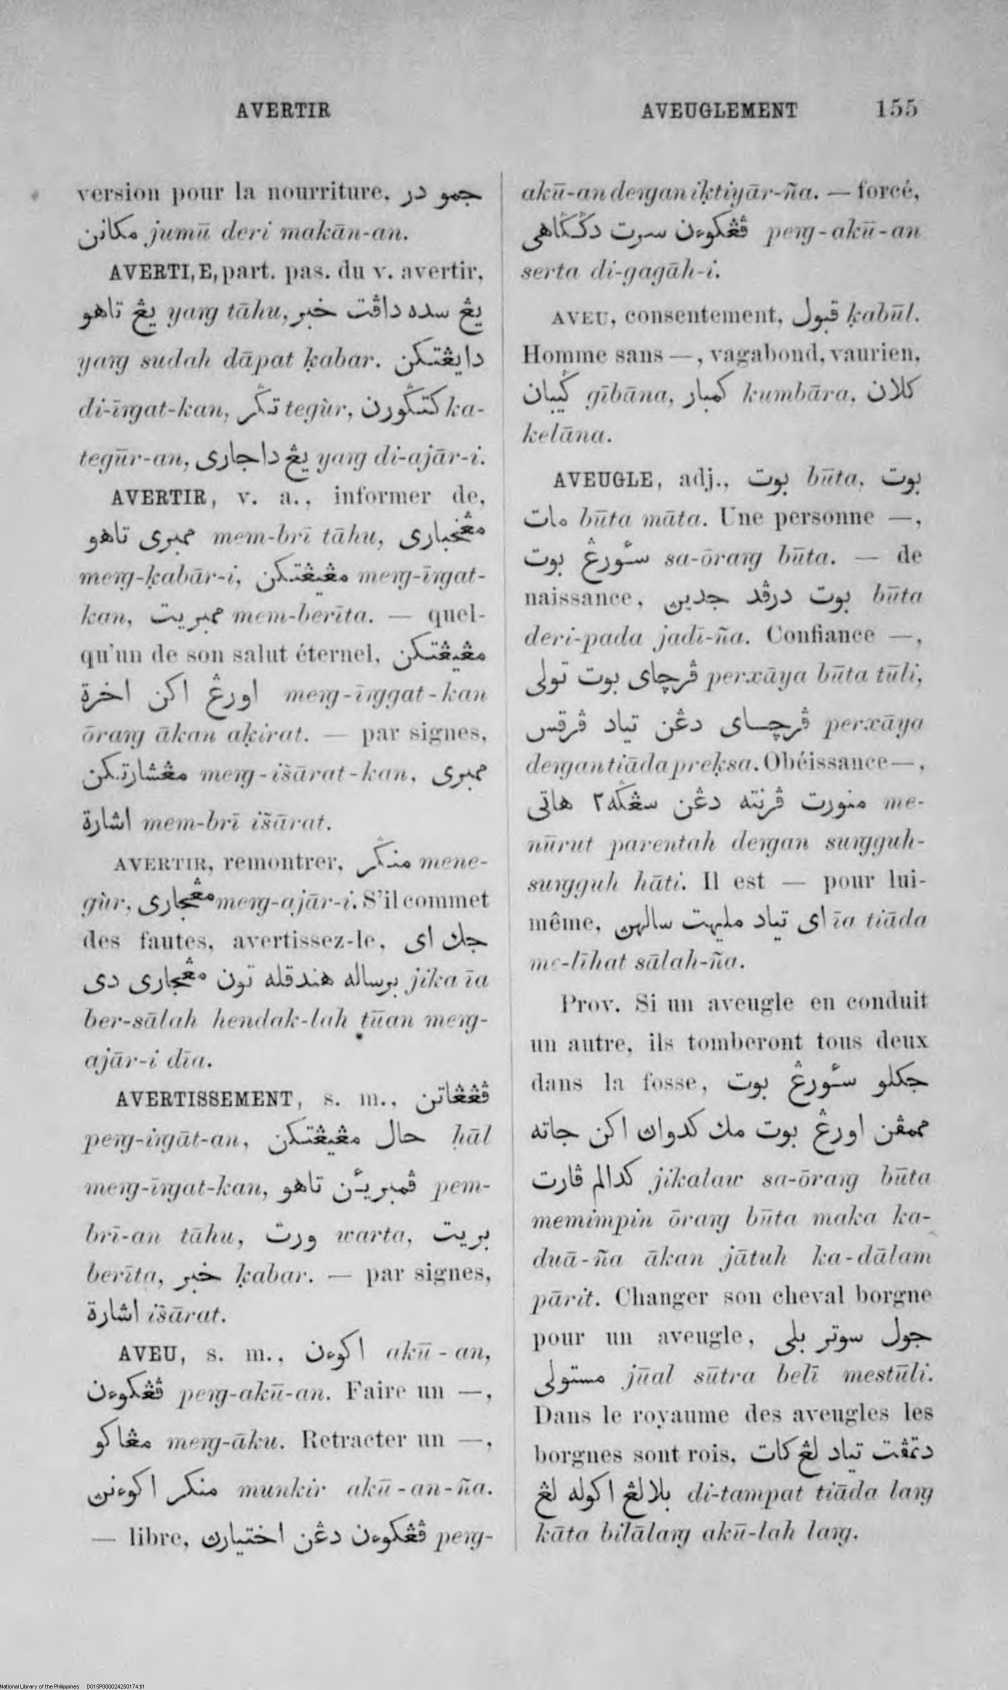 AVERTIR
AVEUGLEMENT 155
version pour la nourriture, جمو در
مكانن jumū deri makān-an.
AVERTI, E, part. pas. du v. avertir,
يڠ تاهو yaṅg tāhu, يڠ سده داڤت خبر
yaṅg sudah dāpat ḳabar, دايڠتكن
di-īṅgat-kan, تݢر tegùr, كتݢورن ka-
tegūr-an, يڠ داجاري yaṅg di-ajār-i.
AVERTIR, v. a., informer de,
ممبري تاهو mem-brī tāhu, مڠخباري
meṅg-ḳabār-i, مڠيڠتكن meṅg-īṅgat-
kan, ممبريت mem-berīta. — quel-
qu'un de son salut éternel, مڠيڠتكن
اورڠ اكن اخرة meṅg-īṅggat-kan
ōraṅg ākan aḳirat. — par signes,
مڠشارتكن meṅg-išārat-kan, ممبري
اشارة mem-brī išārat.
AVERTIR, remontrer, منݢر mene-
gùr, مڠجاري meṅg-ajār-i. S'il commet
des fautes, avertissez-le, جك اي
برساله هندقله تون مڠجاري دي jika īa
ber-sālah hendak-lah tūan meṅg-
ajār-i dīa.
AVERTISSEMENT, s. m., ڤڠڠاتن
peṅg-iṅgāt-an, حال مڠيڠتكن hāl
meṅg-īṅgat-kan, ڤمبرئن تاهو pem-
brī-an tāhu, ورت warta, بريت
berīta, خبر ḳabar. — par signes,
اشارة išārat.
AVEU, s. m., اكوءن akū-an,
ڤڠكوءن peṅg-akū-an. Faire un —,
مڠاكو meṅg-āku. Retracter un —,
منكر اكوءنن munkir akū-an-ña.
— libre, ڤڠكوءن دڠن اختيارن peṅg-
akū-an deṅgan iḳtiyār-ña. — forcé,
ڤڠكوءن سرت دݢݢاهي peṅg-akū-an
serta di-gagāh-i.
AVEU, consentement, قبول ḳabūl.
Homme sans —, vagabond, vaurien,
ݢيبان gībāna, كمبار kumbāra, كلان
kelāna.
AVEUGLE, adj., بوت būta, بوت
مات būta māta. Une personne —,
سٔورڠ بوت sa-ōraṅg būta. — de
naissance, بوت درڤد جدين būta
deri-pada jadī-ña. Confiance —,
ڤرچاي بوت تولي perxāya būta tūli,
ڤرچاي دڠن تياد ڤرقس perxāya
deṅgan tiāda preḳsa. Obéissance —,
منورت ڤرنته دڠن سڠݢه٢ هاتي me-
nūrut parentah deṅgan suṅgguh-
suṅgguh hāti. Il est — pour lui-
même, اي تياد مليهت سالهن īa tiāda
me-līhat sālah-ña.
Prov. Si un aveugle en conduit
un autre, ils tomberont tous deux
dans la fosse, جكلو سٔورڠ بوت
ممڤن اورڠ بوت مك كدوان اكن جاته
كدالم ڤارت jikalaw sa-ōraṅg būta
memimpin ōraṅg būta maka ka-
duā-ña ākan jātuh ka-dālam
pārit. Changer son cheval borgne
pour un aveugle, جول سوتر بلي
مستولي jūal sūtra belī mestūli.
Dans le royaume des aveugles les
borgnes sont rois, دتمڤت تياد لڠ كات
بلالڠ اكوله لڠ di-tampat tiāda laṅg
kāta bilālaṅg akū-lah laṅg.
National Library of the Philippines